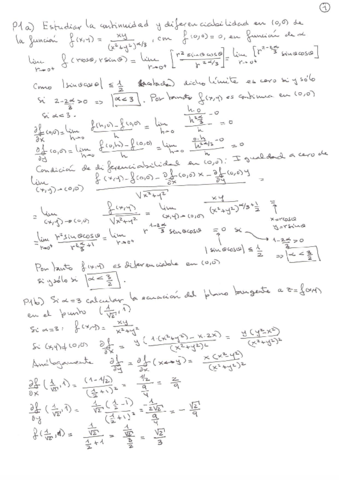 ①
P1a) Estudiar la continuidad y diferenciabilidad en (0,0) de
la función f(x,y) = xy / (x²+y²)^{α/3}, con f(0,0) = 0, en función de α
lim_{r→0⁺} f(rcosθ, rsenθ) = lim_{r→0⁺} [r² sinθcosθ / r^{2α/3}] = lim_{r→0⁺} [r^{2-2α/3} sinθcosθ]
Como |sinθcosθ| ≤ 1/2 (acotada) dicho límite es cero si y sólo
si 2-2α/3 > 0 ⇒ α<3. Por tanto f(x,y) es continua en (0,0)
si α<3.
∂f/∂x(0,0) = lim_{h→0} f(h,0)-f(0,0) / h = lim_{h→0} = 0
∂f/∂y(0,0) = lim_{h→0} f(0,h)-f(0,0) / h = lim_{h→0} = 0
Condición de diferenciabilidad en (0,0): Igualdad a cero de
lim_{(x,y)→(0,0)} f(x,y) - f(0,0) - ∂f/∂x(0,0)x - ∂f/∂y(0,0)y / √(x²+y²) =
= lim_{(x,y)→(0,0)} f(x,y) / √(x²+y²) = lim_{(x,y)→(0,0)} xy / (x²+y²)^{α/3+1/2} = x=rcosθ y=rsenθ
= lim_{r→0⁺} r² sinθcosθ / r^{2α/3+1} = lim_{r→0⁺} r^{1-2α/3} sinθcosθ = 0 si 1-2α/3 > 0
|sinθcosθ| ≤ 1/2 ⇒ α<3/2
Por tanto f(x,y) es diferenciable en (0,0)
si y sólo si α<3/2.
P1b) Si α=3 calcular la ecuación del plano tangente a z=f(x,y)
en el punto (1/√2, 1)
Si α=3: f(x,y) = xy / x²+y²
Si (x,y)≠(0,0) ∂f/∂x = y(1(x²+y²) - x·2x) / (x²+y²)² = y(y²-x²) / (x²+y²)²
Análogamente ∂f/∂y = ∂f/∂x (x↔y) = x(x²-y²) / (x²+y²)²
∂f/∂x (1/√2, 1) = (1-1/2) / (1/2+1)² = 1/2 / 9/4 = 2/9
∂f/∂y (1/√2, 1) = 1/√2 (1/2-1) / (1/2+1)² = -1/2√2 / 9/4 = -√2/9
f(1/√2, 1) = 1/√2 / 1/2+1 = 1/√2 / 3/2 = √2/3